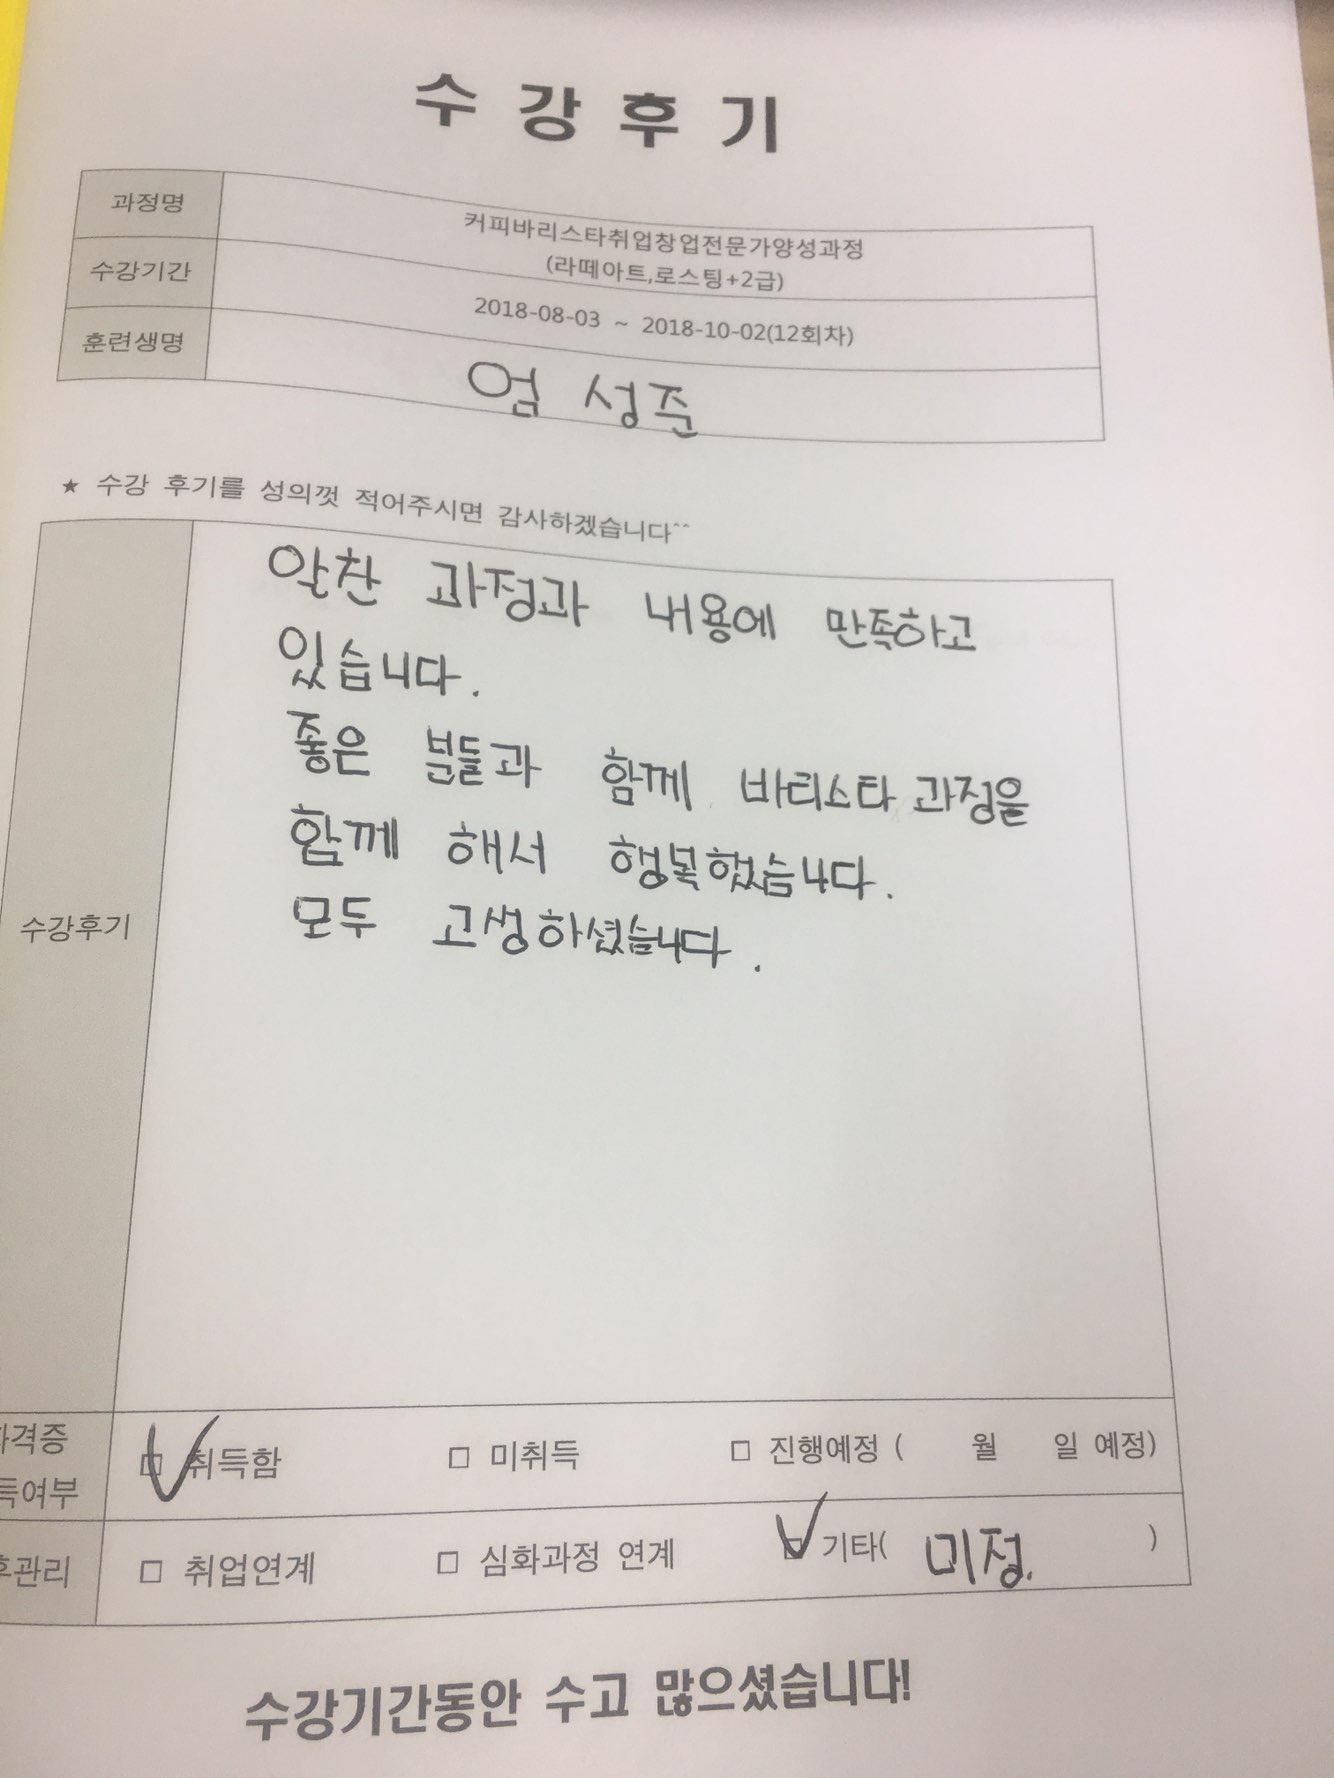 수강후기
과정명
커피바리스타취업창업전문가양성과정
(라떼아트,로스팅+2급)
수강기간
2018-08-03 ~ 2018-10-02(12회차)
훈련생명
엄 성준
★ 수강 후기를 성의껏 적어주시면 감사하겠습니다^^
수강후기
알찬 과정과 내용에 만족하고
있습니다.
좋은 분들과 함께 바리스타 과정을
함께 해서 행복했습니다.
모두 고생하셨습니다.
격증
득여부
□ 취득함 □ 미취득 □ 진행예정 ( 월 일 예정)
관리
□ 취업연계 □ 심화과정 연계 □ 기타( 미정. )
수강기간동안 수고 많으셨습니다!